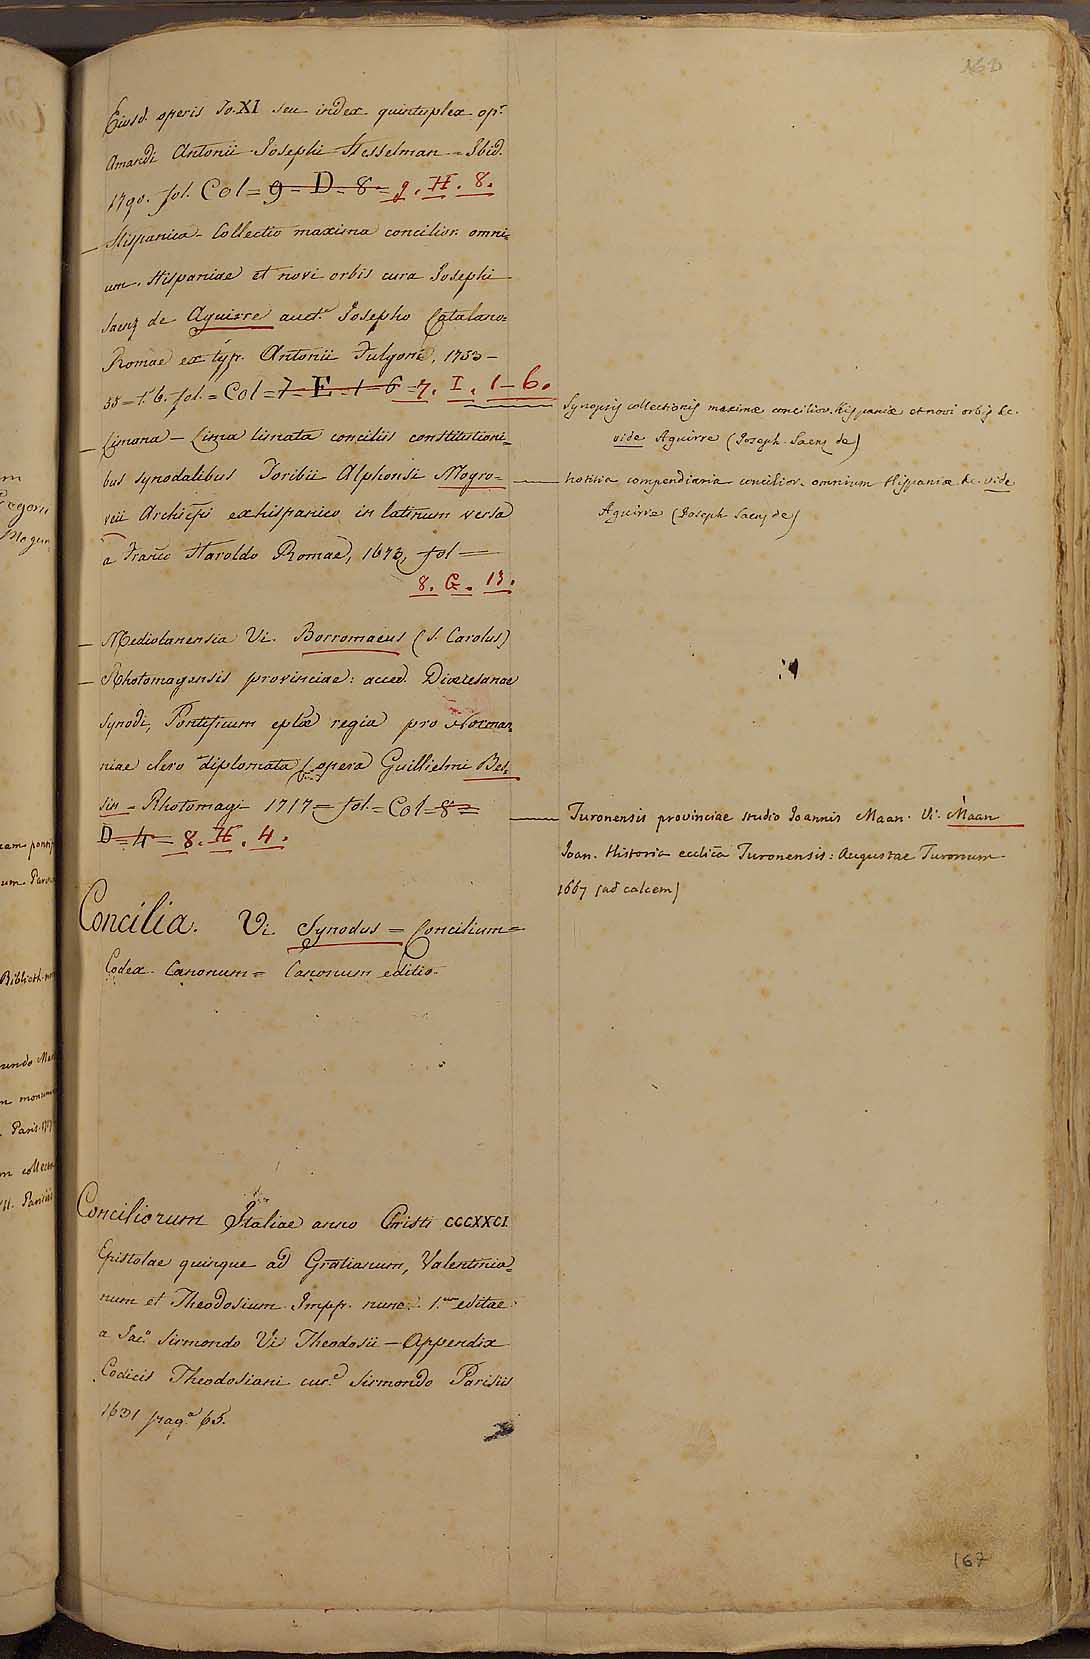 Eiusd. operis To. XI seu index quintuplex op.ᵃ
Amandi Antonii Josephi Hesselman = Ibid.
1790. fol. Col = 9 = D = 8 = 9. H. 8.
— Hispanica = Collectio maxima concilior. omni=
um. Hispaniae et novi orbis cura Josephi
Saenz de Aguirre auct.ᵉ Josepho Catalano=
Romae ex typ. Antonii Fulgoni, 1753 –
55 = t. 6. fol. = Col = 7 = E = 1 – 6 = 7. I. 1 – 6.
— Limana – Lima limata conciliis constitutioni=
bus synodalibus Toribii Alphonsi Mogro=
veii Archiepi ex hispanico in latinum versa
a Franco Haroldo Romae, 1673, fol =
8. G. 13.
— Mediolanensia Vi. Borromaeus (S. Carolus)
— Rhotomagensis provinciae: acced. Dioecesanae
synodi, Pontificum eplæ regia pro Norman=
niae clero diplomata (opera Guillielmi Bes=
sin = Rhotomagi – 1717 = fol. = Col = 8 =
D = 4 = 8. H. 4.
Concilia. Vi. Synodus = Concilium =
Codex. Canonum = Canonum editio.
Conciliorum Italiae anno Christi CCCXXCI
Epistolae quinque ad Gratianum, Valentinia=
num et Theodosium Impp. nunc 1.ᵘᵐ editae
a Jac.º Sirmondo Vi Theodosii – Appendix
Codicis Theodosiani cur.ᵉ Sirmondo Parisiis
1631 pag.ᵃ 65.
Synopsis collectionis maximæ concilior. Hispaniæ et novi orbis &c.
vide Aguirre (Joseph. Saenz de)
— Notitia compendiaria concilior. omnium Hispaniæ &c. vide
Aguirre (Joseph Saenz de)
— Turonensis provinciae studio Joannis Maan. Vi. Maan
Joan. Historia ecclica Turonensis: Augustae Turonum
1667 (ad calcem)
167